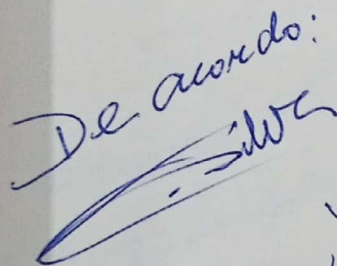 De acordo:
Silva